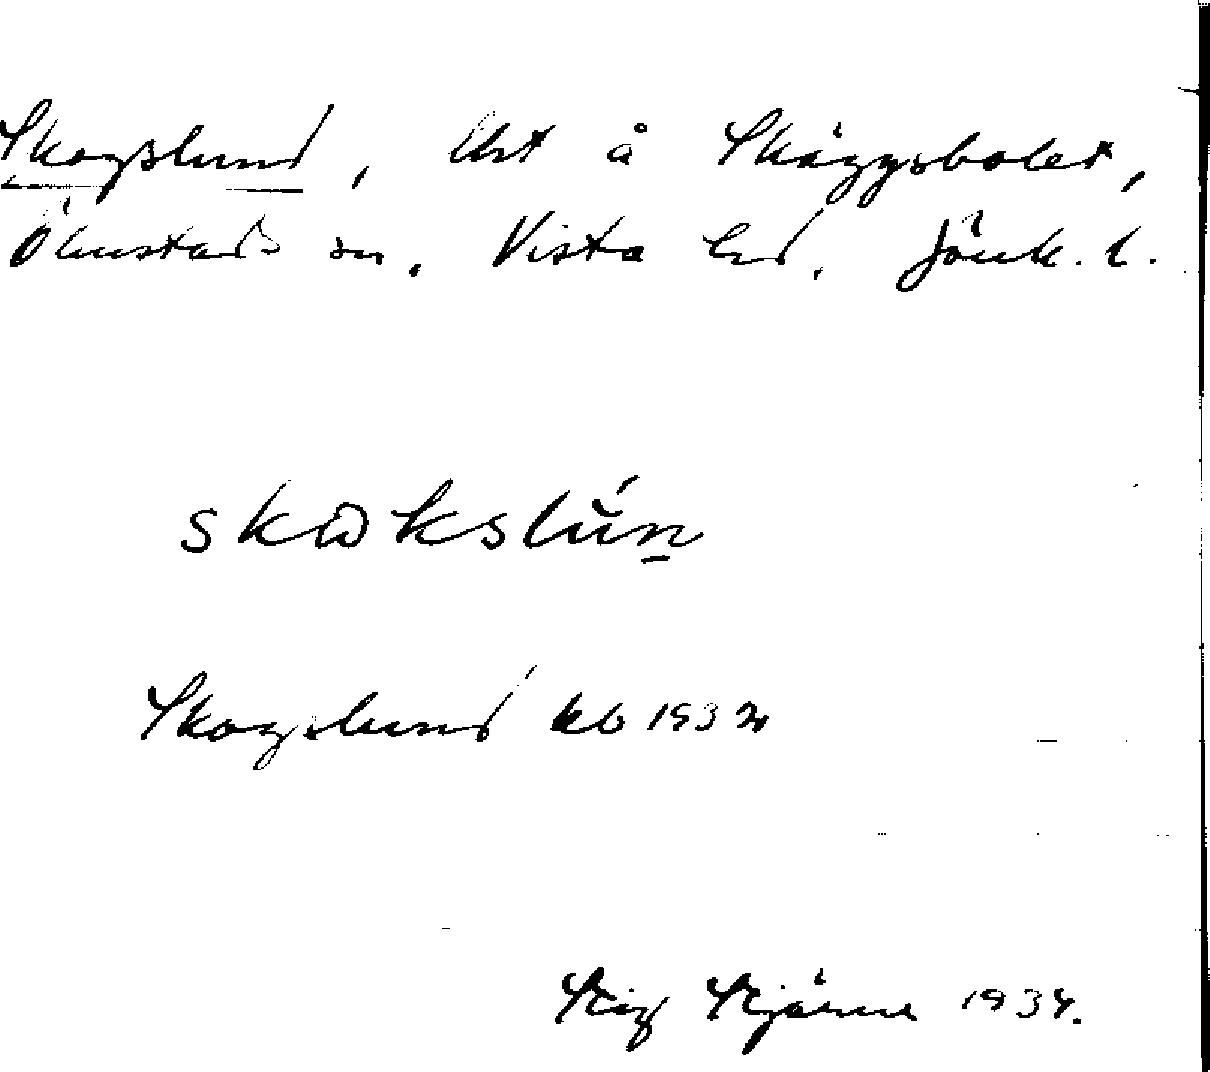 Skogslund, lht å Skäggsbolet,
Ölmstads sn. Vista hd. Jönk. l.
skωkslún
Skogslund kb 1932
Stig Stjärne 1934.